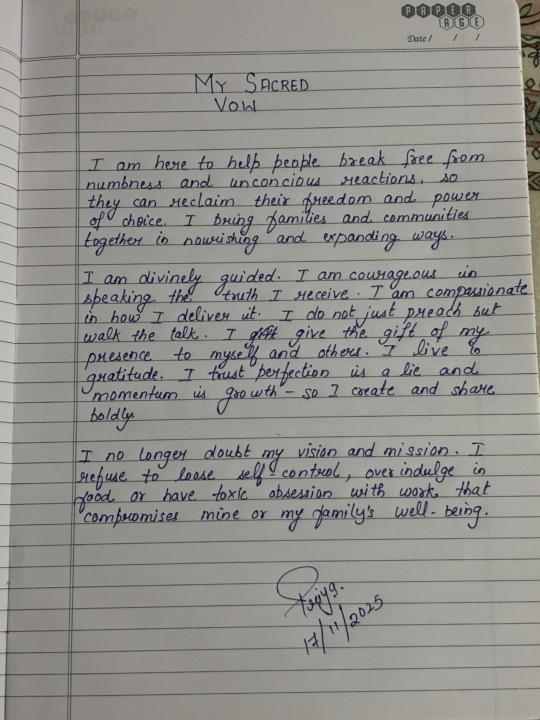 PAPER
AGE
Date / / /
MY SACRED
VOW
I am here to help people break free from
numbness and unconcious reactions, so
they can reclaim their freedom and power
of choice. I bring families and communities
together in nourishing and expanding ways.
I am divinely guided. I am courageous in
speaking the truth I receive. I am compassionate
in how I deliver it. I do not just preach but
walk the talk. I give the gift of my
presence to myself and others. I live in
gratitude. I trust perfection is a lie and
momentum is growth - so I create and share
boldly
I no longer doubt my vision and mission. I
refuse to loose self-control, over indulge in
food or have toxic obsession with work that
compromises mine or my family's well-being.
Priya.
17/11/2025